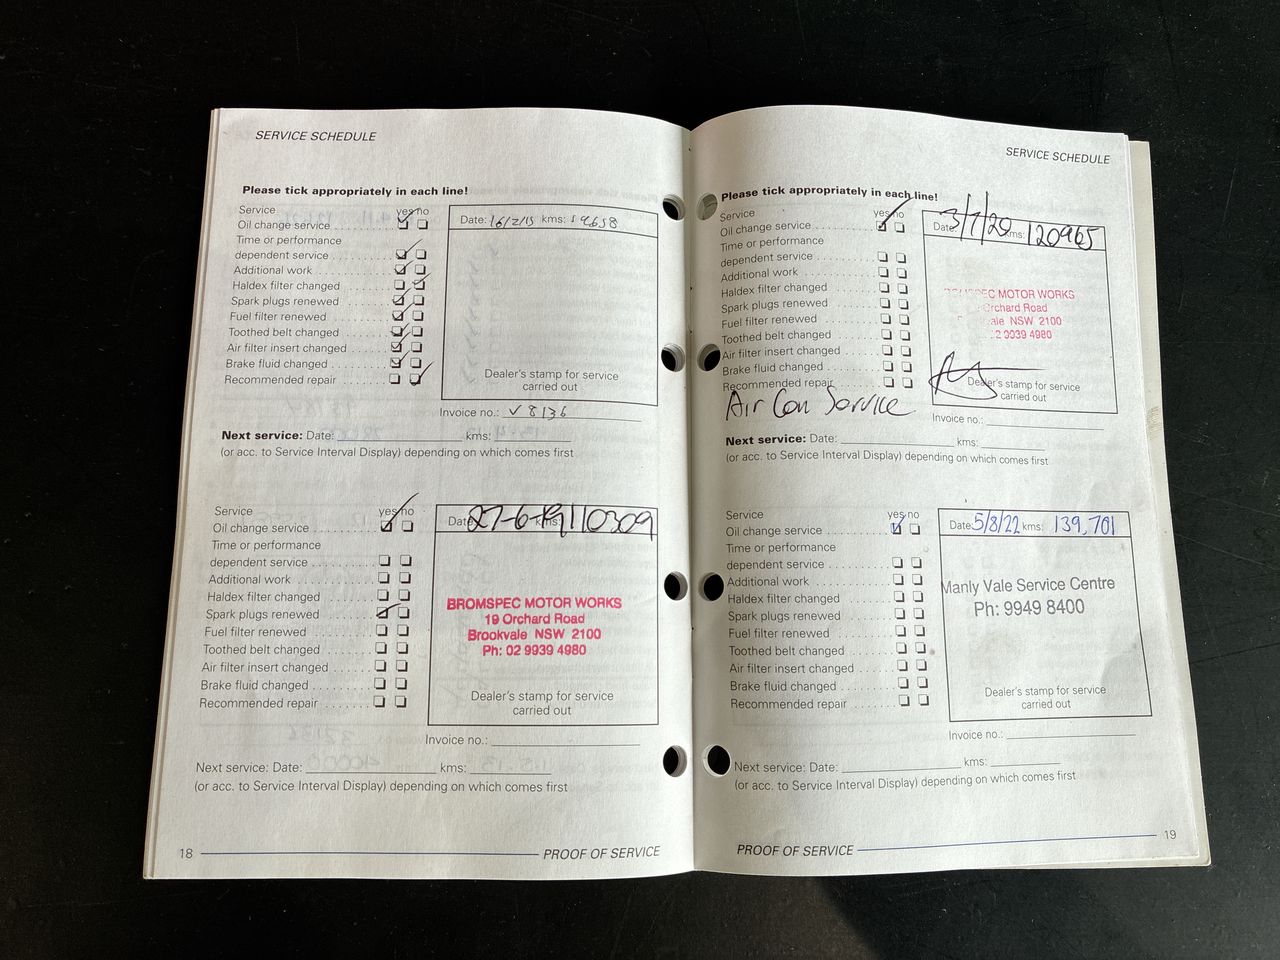 SERVICE SCHEDULE
Please tick appropriately in each line!
Service yes no
Oil change service
Time or performance
dependent service
Additional work
Haldex filter changed
Spark plugs renewed
Fuel filter renewed
Toothed belt changed
Air filter insert changed
Brake fluid changed
Recommended repair
Date: 16/2/15 kms:
Dealer's stamp for service
carried out
Invoice no.: 8136
Next service: Date: kms:
(or acc. to Service Interval Display) depending on which comes first
Service yes no
Oil change service
Time or performance
dependent service
Additional work
Haldex filter changed
Spark plugs renewed
Fuel filter renewed
Toothed belt changed
Air filter insert changed
Brake fluid changed
Recommended repair
Date: 27-6-19 kms: 110309
BROMSPEC MOTOR WORKS
19 Orchard Road
Brookvale NSW 2100
Ph: 02 9939 4980
Dealer's stamp for service
carried out
Invoice no.:
Next service: Date: kms:
(or acc. to Service Interval Display) depending on which comes first
18 PROOF OF SERVICE
SERVICE SCHEDULE
Please tick appropriately in each line!
Service yes no
Oil change service
Time or performance
dependent service
Additional work
Haldex filter changed
Spark plugs renewed
Fuel filter renewed
Toothed belt changed
Air filter insert changed
Brake fluid changed
Recommended repair
Air Con Service
Date: kms: 120965
MOTOR WORKS
Orchard Road
NSW 2100
02 9939 4980
Dealer's stamp for service
carried out
Invoice no.:
Next service: Date: kms:
(or acc. to Service Interval Display) depending on which comes first
Service yes no
Oil change service
Time or performance
dependent service
Additional work
Haldex filter changed
Spark plugs renewed
Fuel filter renewed
Toothed belt changed
Air filter insert changed
Brake fluid changed
Recommended repair
Date: 5/8/22 kms: 139,701
Manly Vale Service Centre
Ph: 9949 8400
Dealer's stamp for service
carried out
Invoice no.:
Next service: Date: kms:
(or acc. to Service Interval Display) depending on which comes first
PROOF OF SERVICE 19